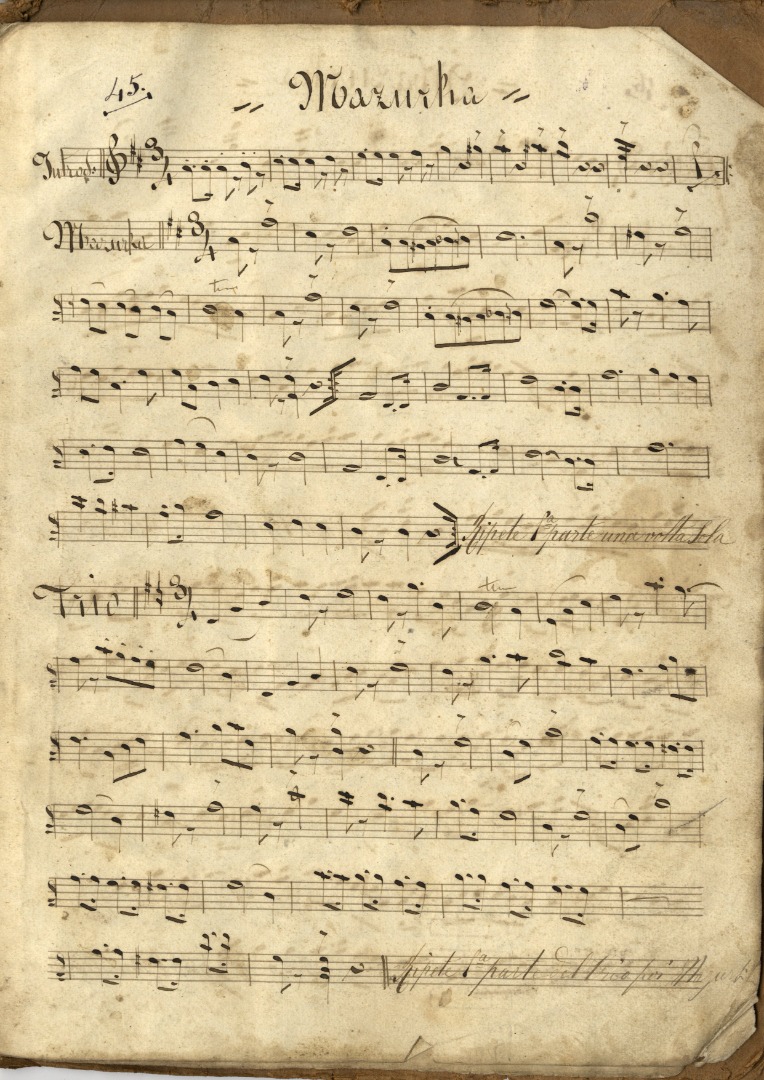 45.
= Mazurka =
Introd.
3/4
Mazurka 3/4
Ripete 1ª parte una volta sola
Trio 3/4
Ripete 1ª parte del Trio poi